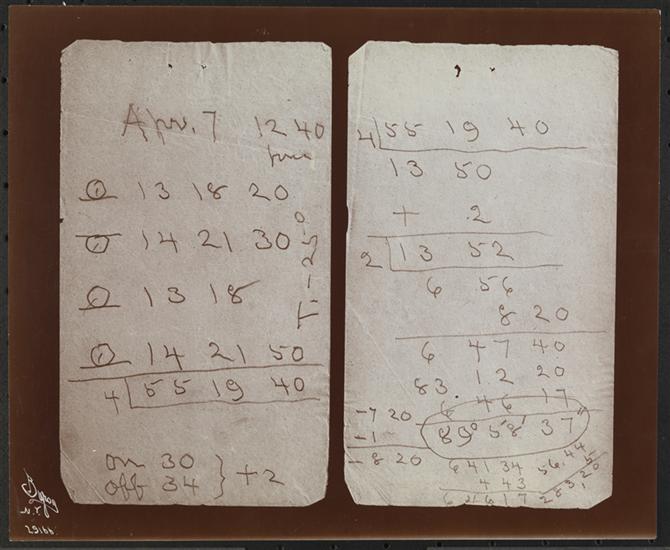 Apr. 7 12 40
13 18 20
14 21 30
13 18
14 21 50
4 55 19 40
on 30
off 34 } +2
T-25-0
4 55 19 40
13 50
+ .2
2 13 52
6 56
8 20
6 47 40
83 12 20
6 46 17
83° 58' 37"
-7 20
-1
-8 20
6 41 34
4 43
6 46 17
56.44
5
283.20
N.Y.
29166